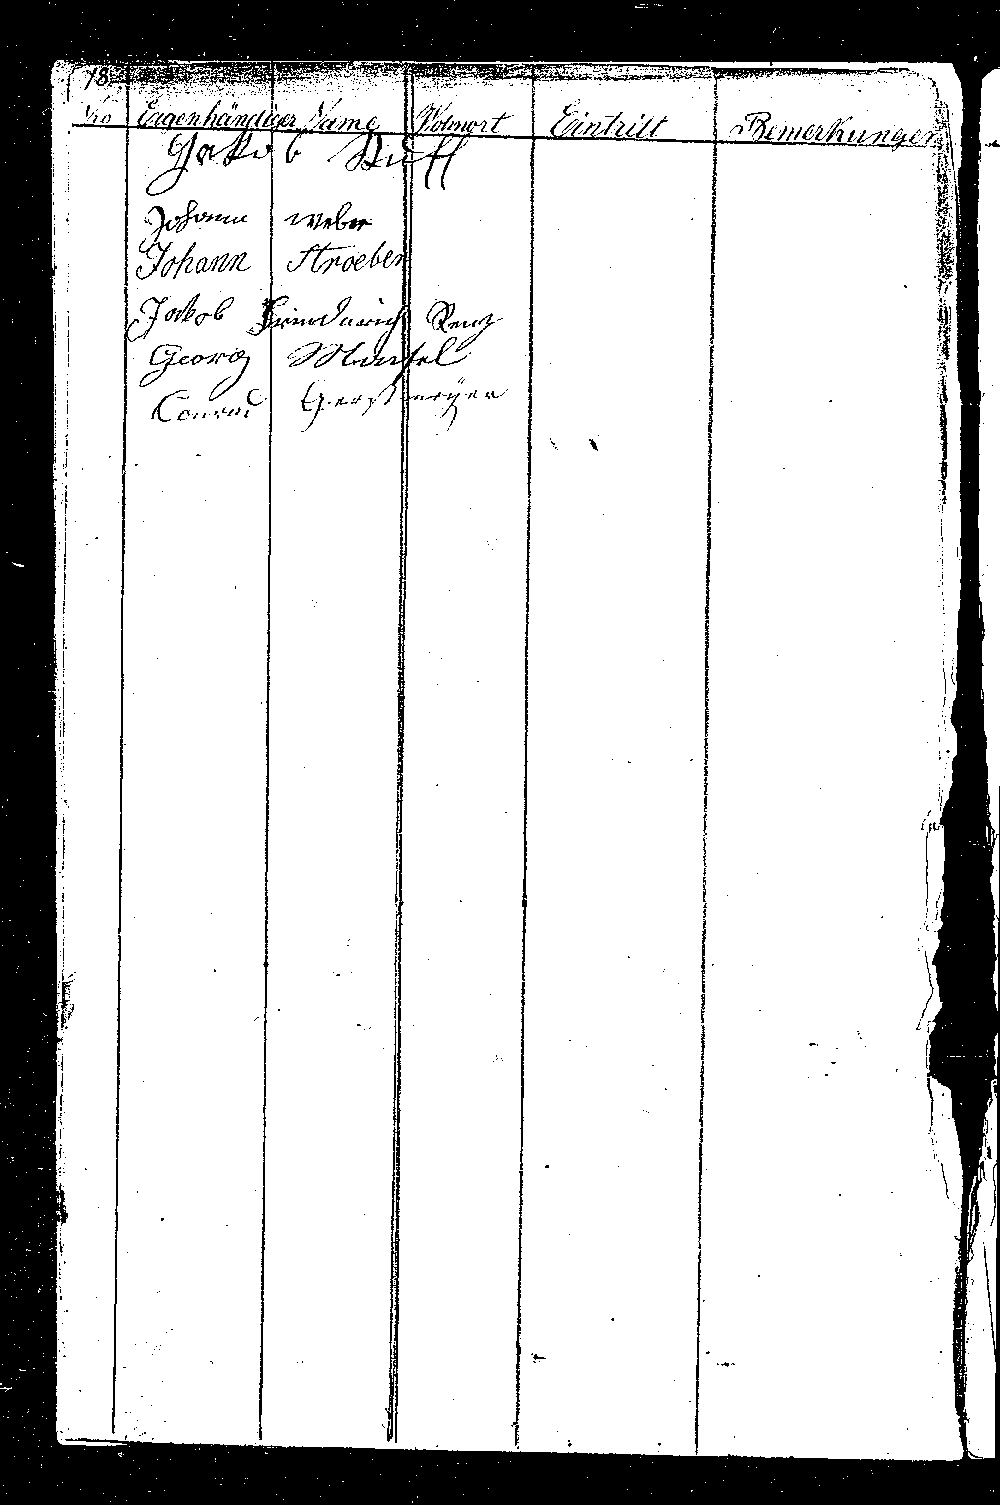 18
No Eigenhändiger Name Wohnort Eintritt Bemerkungen
Jakob Ruff
Johann Weber
Johann Stroebel
Jakob Friedarich Renz
Georg
Conrad